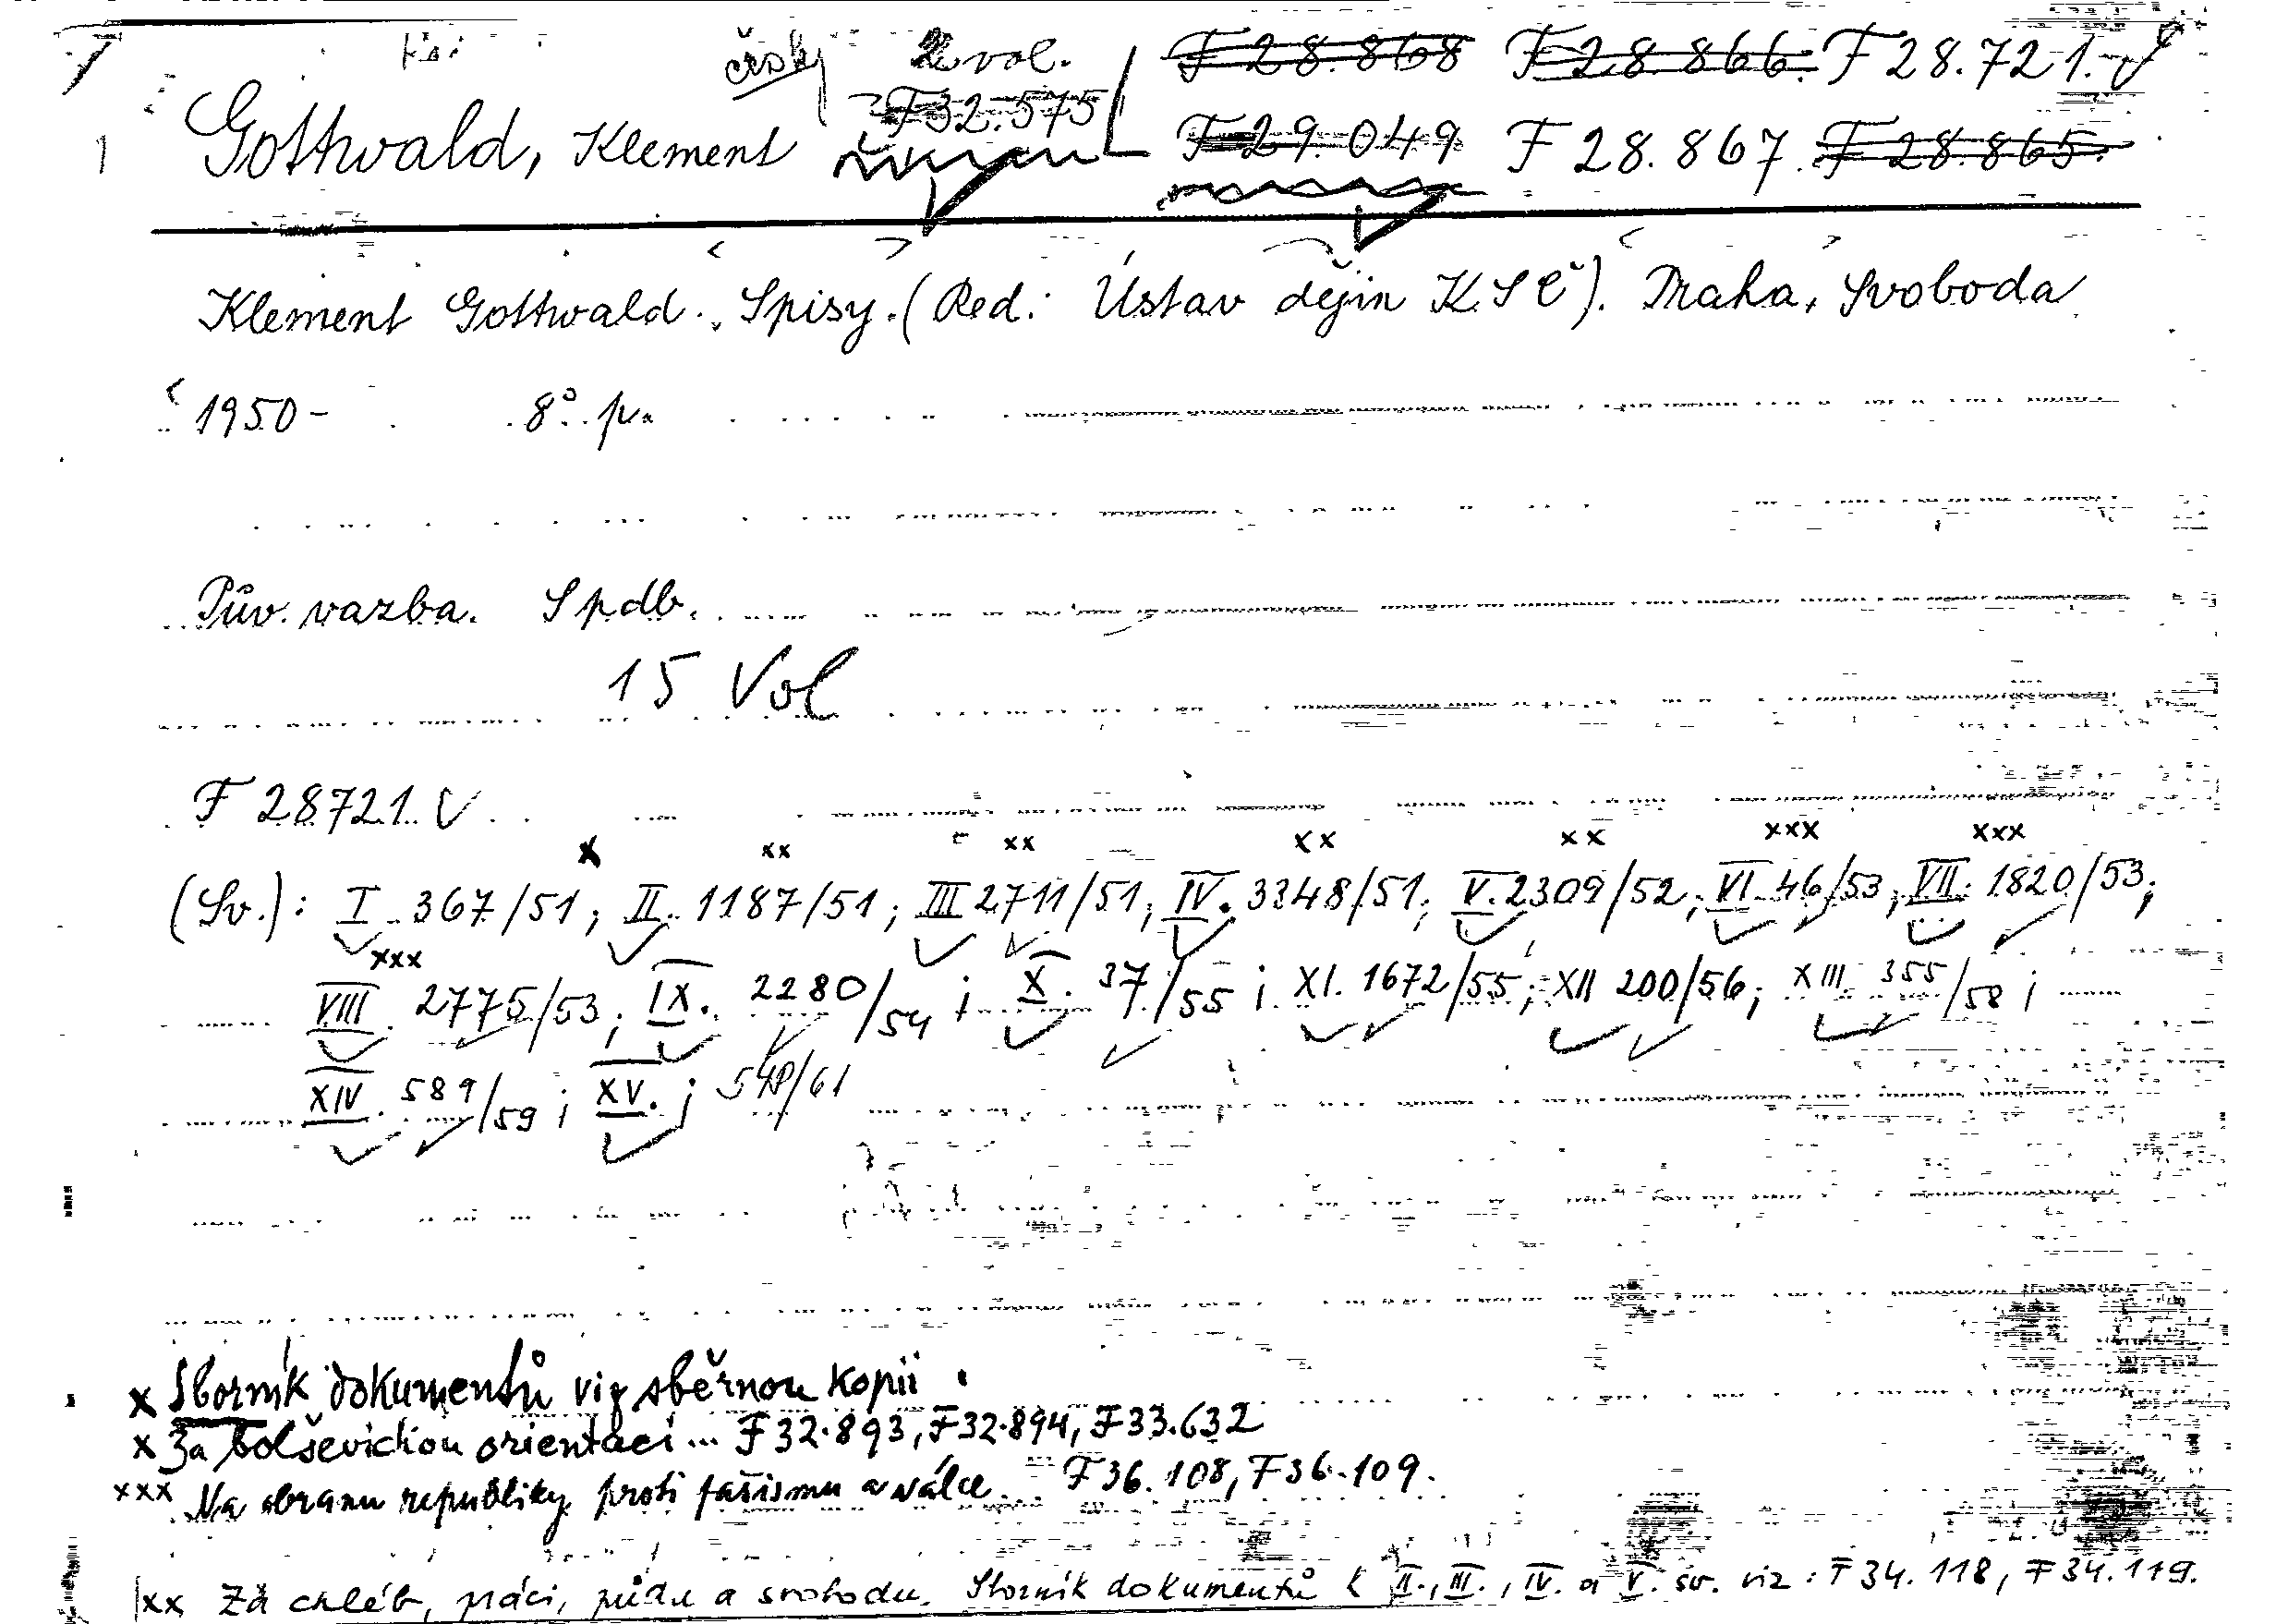 česky 2 vol. F 28.868 F 28.866. F 28.721.
F 32.575
1 Gottwald, Klement F 29.049 F 28.867. F 28.865.
Klement Gottwald. Spisy. (Red.: Ústav dějin KSČ). Praha, Svoboda
1950- 8°. pv.
Pův. vazba. Spdb.
15 Vol
F 28721. V
x xx xx xx xx xxx xxx
(Sv.): I. 367/51; II. 1187/51; III 2711/51; IV. 3348/51; V. 2309/52; VI. 46/53; VII. 1820/53;
xxx
VIII. 2775/53; IX. 2280/54; X. 37/55; XI. 1672/55; XII 200/56; XIII. 355/58;
XIV. 589/59; XV.; 548/61
x Sborník dokumentů viz sběrnou kopii.
x Za bolševickou orientaci... F 32.893, F 32.894, F 33.632
xxx Na obranu republiky proti fašismu a válce. F 36.108, F 36.109.
xx Za chléb, práci, půdu a svobodu. Sborník dokumentů k II., III., IV. a V. sv. viz: F 34.118, F 34.119.